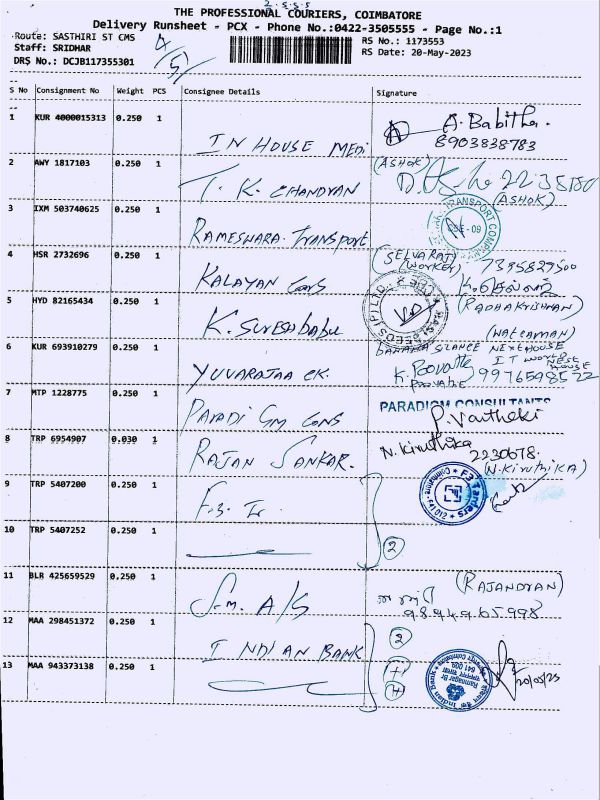 THE PROFESSIONAL COURIERS, COIMBATORE
Delivery Runsheet - PCX - Phone No.:0422-3505555 - Page No.:1
Route: SASTHIRI ST CMS
Staff: SRIDHAR
DRS No.: DCJB117355301
RS No.: 1173553
RS Date: 20-May-2023
S No Consignment No Weight PCS Consignee Details Signature
1 KUR 4000015313 0.250 1
IN HOUSE MEDI
A. Babitha.
8903838783
2 AWY 1817103 0.250 1
T. K. CHANDRAN
(ASHOK)
(ASHOK)
3 IXM 503740625 0.250 1
RAMESWARA. Transport
4 HSR 2732696 0.250 1
KALAYAN Cons
(SELVARAJ)
(WORKER)
5 HYD 82165434 0.250 1
K. Sureshbabu
(RADHAKRISHNAN)
(WATCHMAN)
6 KUR 693910279 0.250 1
YUVARAJAA CK.
NEXT HOUSE
9976598522
7 MTP 1228775 0.250 1
PARADIGM Cons
PARADIGM CONSULTANTS
8 TRP 6954907 0.030 1
RAJAN SANKAR.
N. Kiruthika
2230678.
(N. KIRUTHIKA)
9 TRP 5407200 0.250 1
10 TRP 5407252 0.250 1
2
11 BLR 425659529 0.250 1
S.M. A/S
(RAJANDRAN)
9894965998
12 MAA 298451372 0.250 1
INDIAN BANK
2
13 MAA 943373138 0.250 1
20/05/23